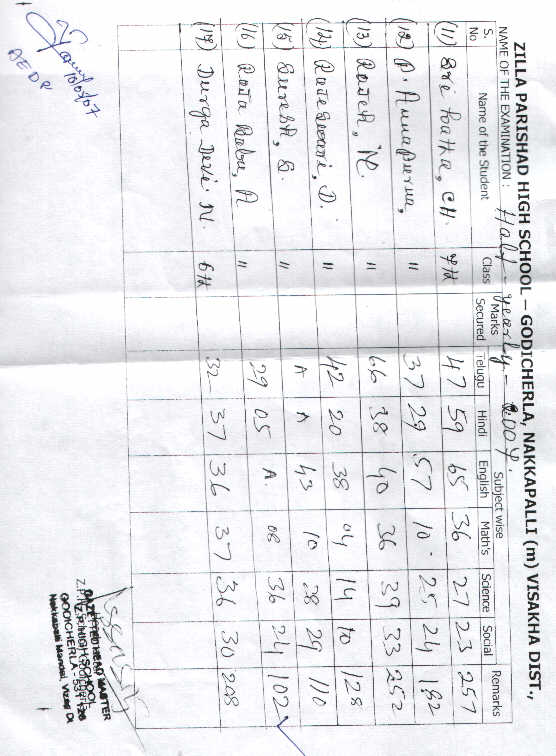 ZILLA PARISHAD HIGH SCHOOL – GODICHERLA, NAKKAPALLI (m) VISAKHA DIST.,
NAME OF THE EXAMINATION : Half - yearly - 2007.
S. No Name of the Student Class Marks Secured Subject wise Remarks
Telugu Hindi English Math's Science Social
(11) Sri Latha, CH. 7th 47 59 65 36 27 23 257
(12) P. Annapurna, " 37 29 57 10 25 24 182
(13) Rajesh, M. " 66 38 40 36 39 33 252
(14) Rajeswari, D. " 42 20 38 04 14 10 128
(15) Suresh, G. " A A 43 10 28 29 110
(16) Raja Babu, A " 29 05 A. 08 36 24 102
(17) Durga Devi N. 6th 32 37 36 37 36 30 208
AEDP
GAZETTED HEAD MASTER
Z.P. HIGH SCHOOL
GODICHERLA
Nakkapalli Mandal,